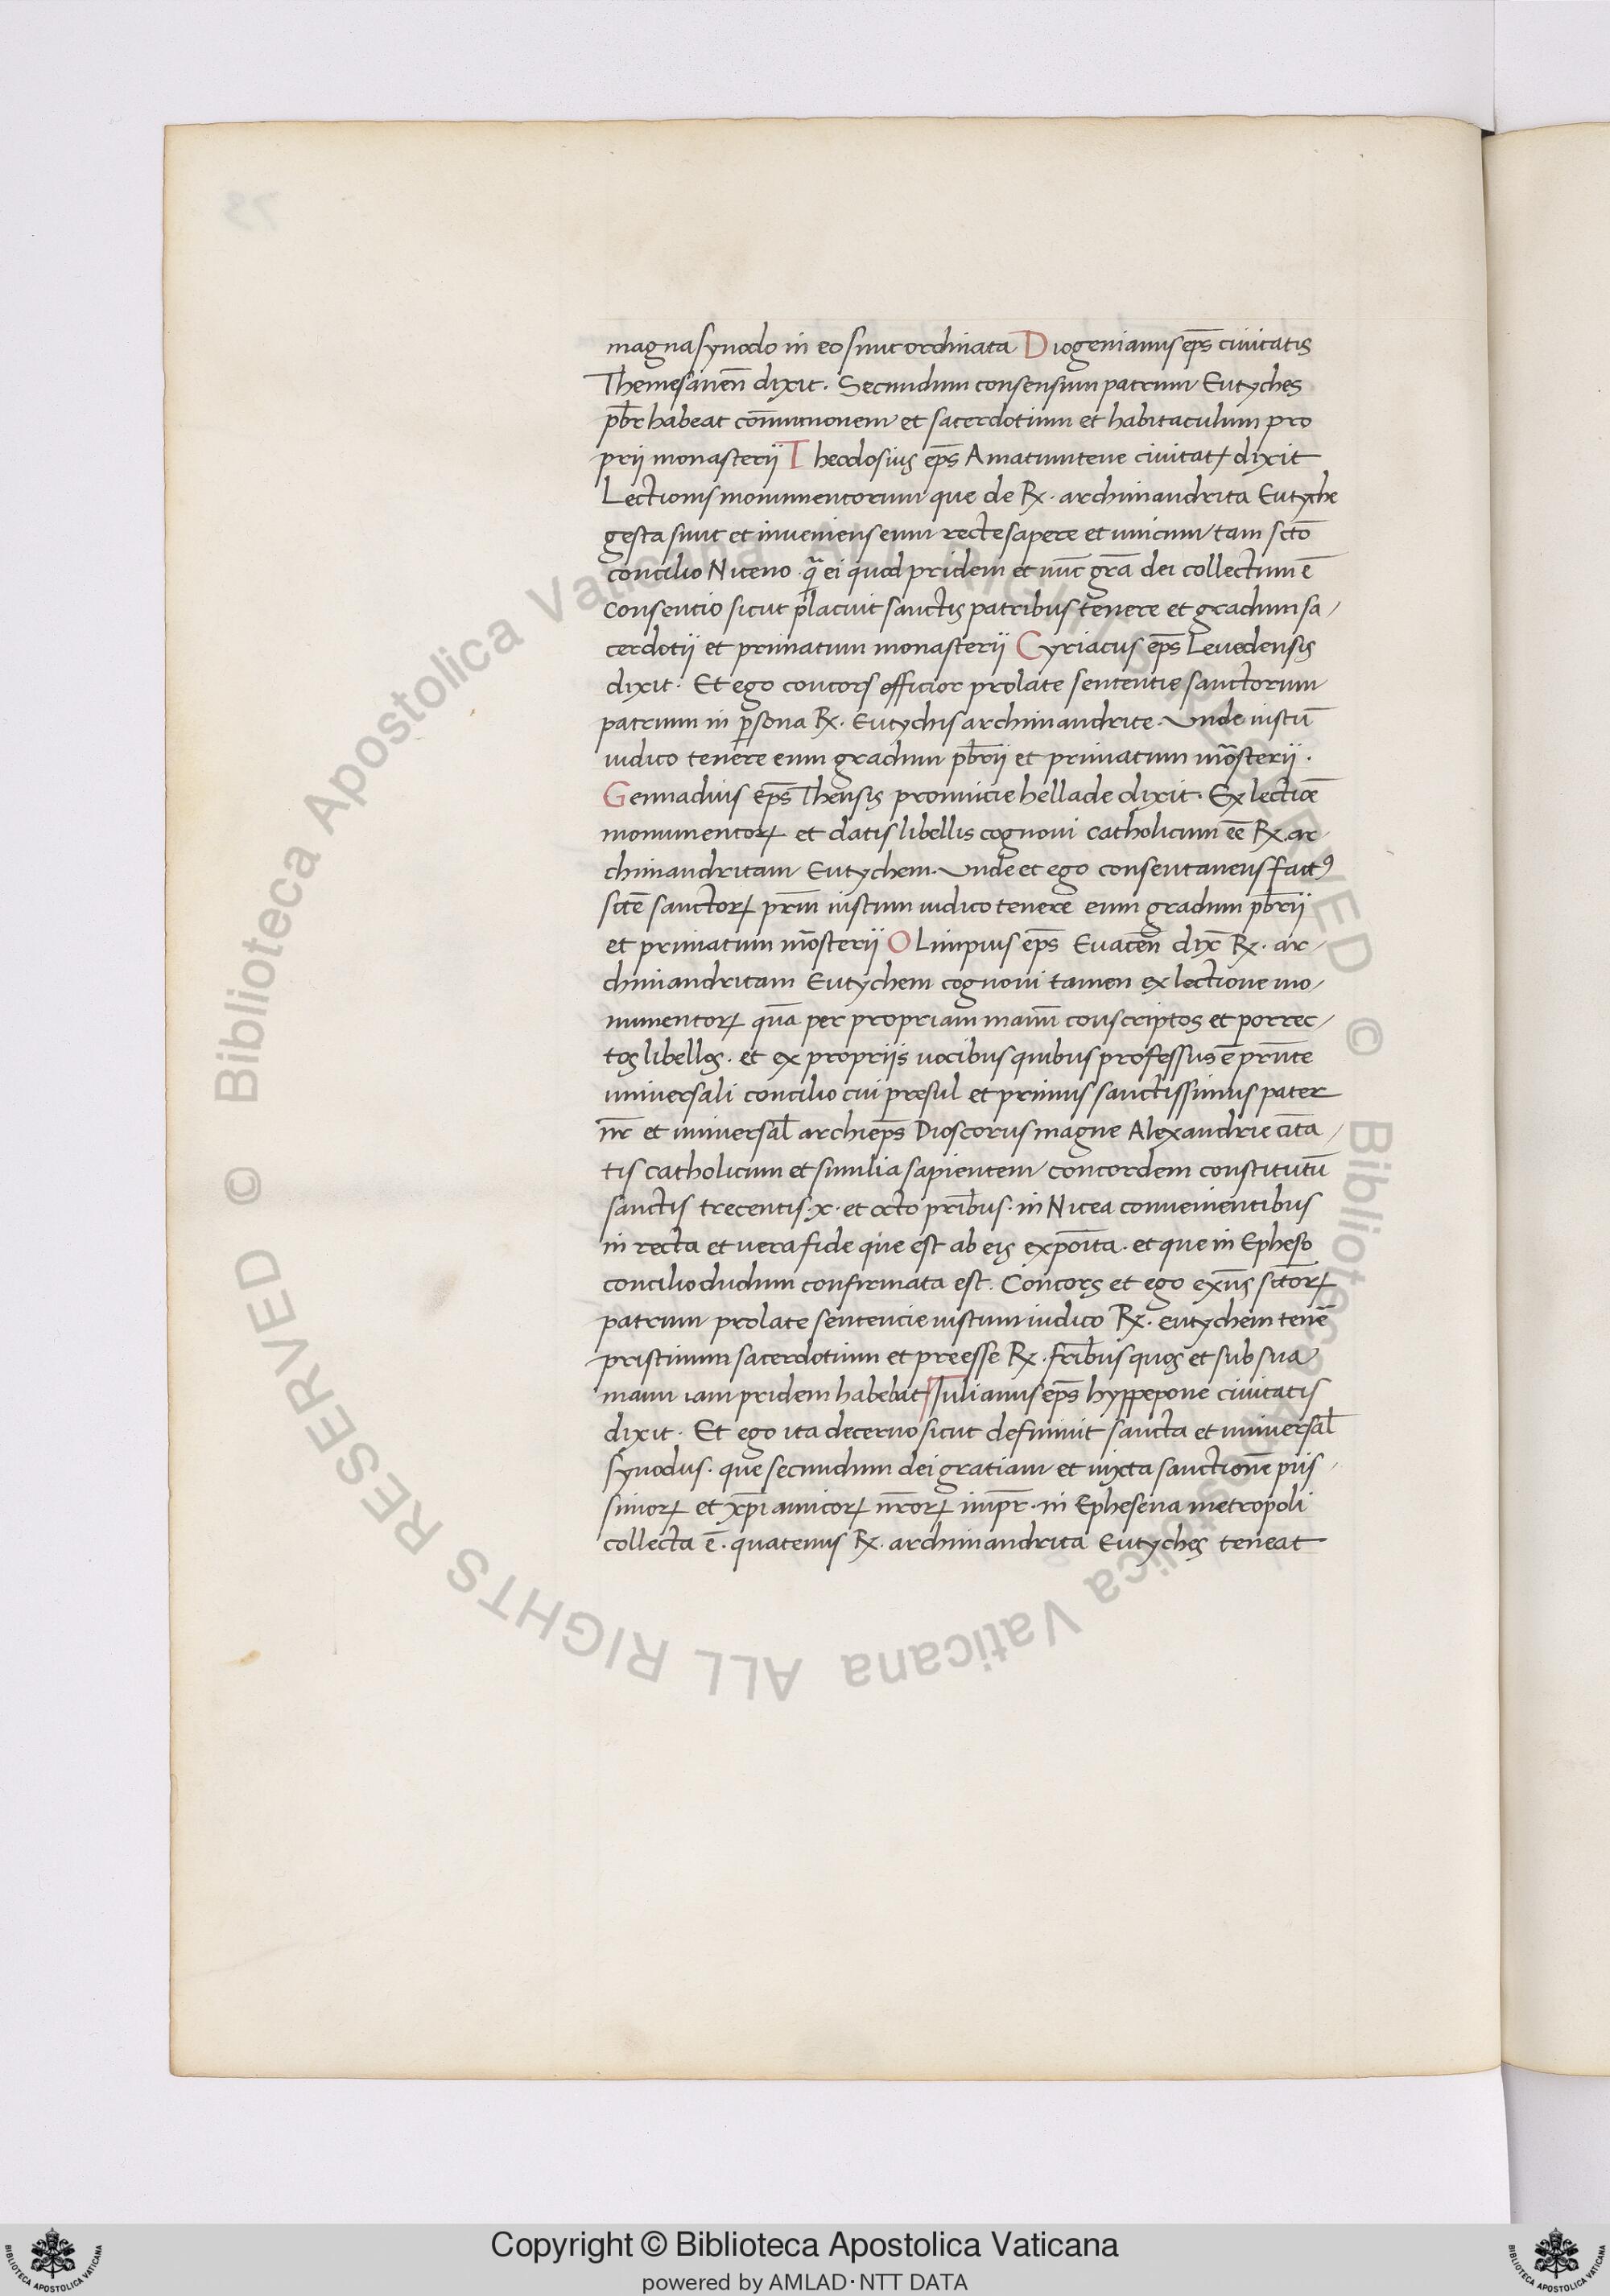 magna synodo in eo sunt ordinata Diogenianus ep̄s ciuitatis
Themesanen̄ dixit. Secundum consensum patrum Eutyches
pb̄r habeat com̄unionem et sacerdotium et habitaculum pro
prij monasterij Theodosius ep̄s Amatuntene ciuitatꝭ dixit
Lectionis monumentorum que de Rx. archimandrita Eutyche
gesta sunt et inueniens eum recte sapere et unicum tam sc̄to
concilio Niceno q̄ ei quod pridem et nūc gr̄a dei collectum ē
consentio sicut placuit sanctis patribus tenere et gradum sa/
cerdotij et primatum monasterij Cyriacus ep̄s Leuedensis
dixit. Et ego concors efficior prolate sententie sanctorum
patrum in ꝑsona Rx. Eutychis archimandrite. Unde iustū
iudico tenere eum gradum pb̄rij et primatum mōsterij.
Gennadius ep̄s Thensis prouincie hellade dixit. Ex lectiōe
monumentoꝝ et datis libellis cognoui catholicum ēe Rx. ar/
chimandritam Eutychem. Unde et ego consentaneus factꝰ
sn̄te sanctoꝝ pr̄m iustum iudico tenere eum gradum pb̄rij
et primatum mōsterij Olimpius ep̄s Euacen̄ dix̄ Rx. ar/
chimandritam Eutychem cognoui tamen ex lectione mo/
numentoꝝ quā per propriam manū conscriptos et porrec/
tos libellos. et ex proprijs uocibus quibus professus ē prn̄te
uniuersali concilio cui presul et primus sanctissimus pater
nr̄ et uniuersal̄ archiep̄s Dioscorus magne Alexandrie cīta/
tis catholicum et similia sapientem concordem constitutū
sanctis trecentis. x. et octo prībus. in Nicea conuenientibus
in recta et uera fide que est ab eis expōita. et que in Epheso
concilio dudum confirmata est. Concors et ego exn̄s sc̄toꝝ
patrum prolate sentencie iustum iudico Rx. eutychem tenē
pristinum sacerdotium et preesse Rx. fr̄ibus quos et sub sua
manu iam pridem habebat Iulianus ep̄s hyppepone ciuitatis
dixit. Et ego ita decerno sicut definiuit sancta et uniuersal̄
synodus. que secundum dei gratiam et iuxta sanctionē piis/
simoꝝ et xp̄i amicoꝝ nr̄oꝝ impr̄. in Ephesena metropoli
collecta ē. quatenus Rx. archimandrita Eutyches teneat
Copyright © Biblioteca Apostolica Vaticana
powered by AMLAD·NTT DATA